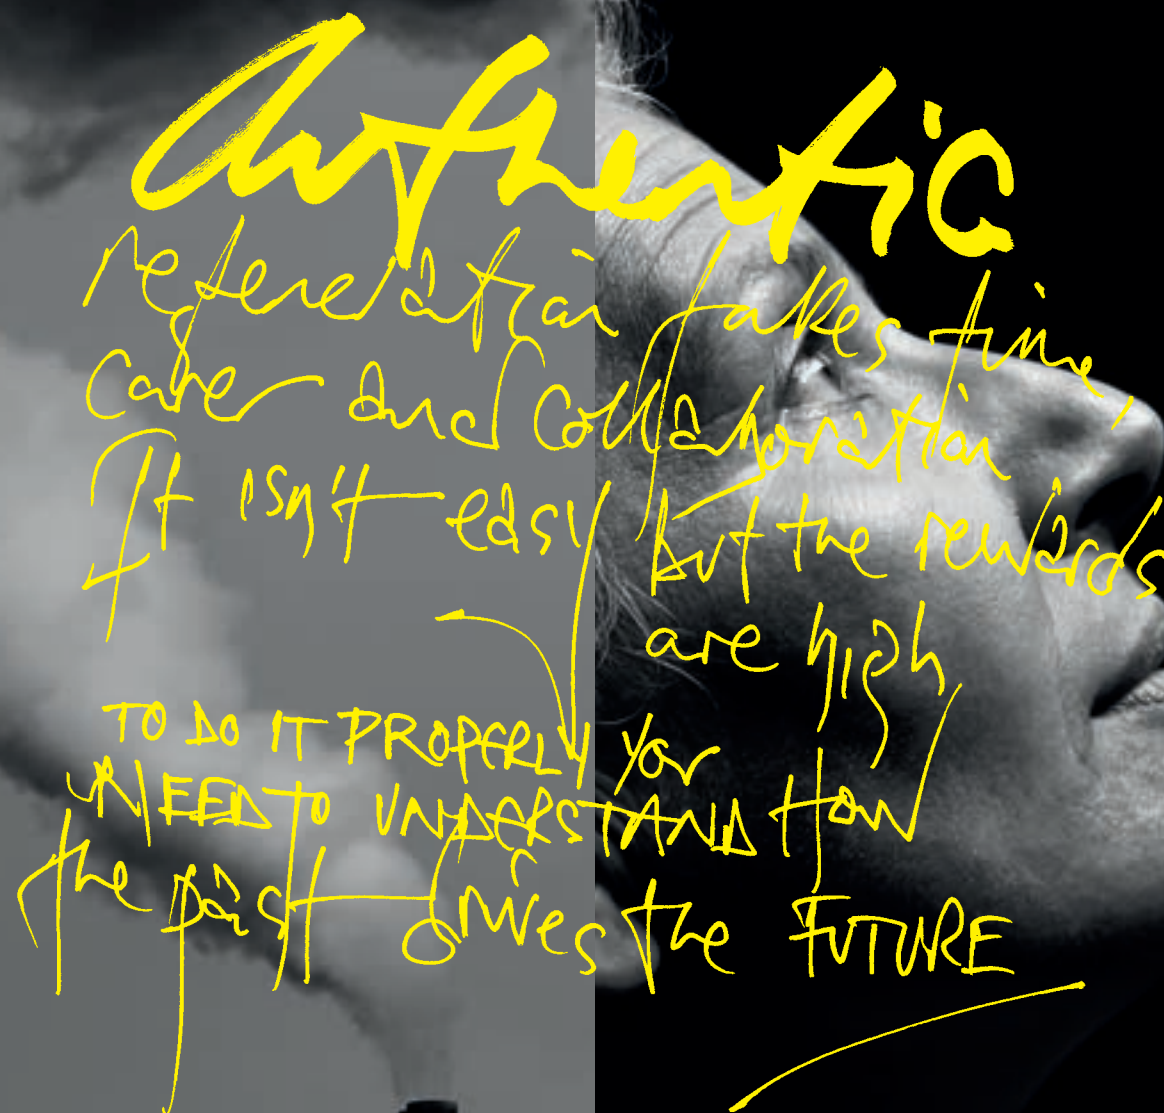 Authentic
regeneration takes time,
care and collaboration
It isn't easy but the rewards
are high
TO DO IT PROPERLY you
NEED TO UNDERSTAND HOW
the past drives the FUTURE